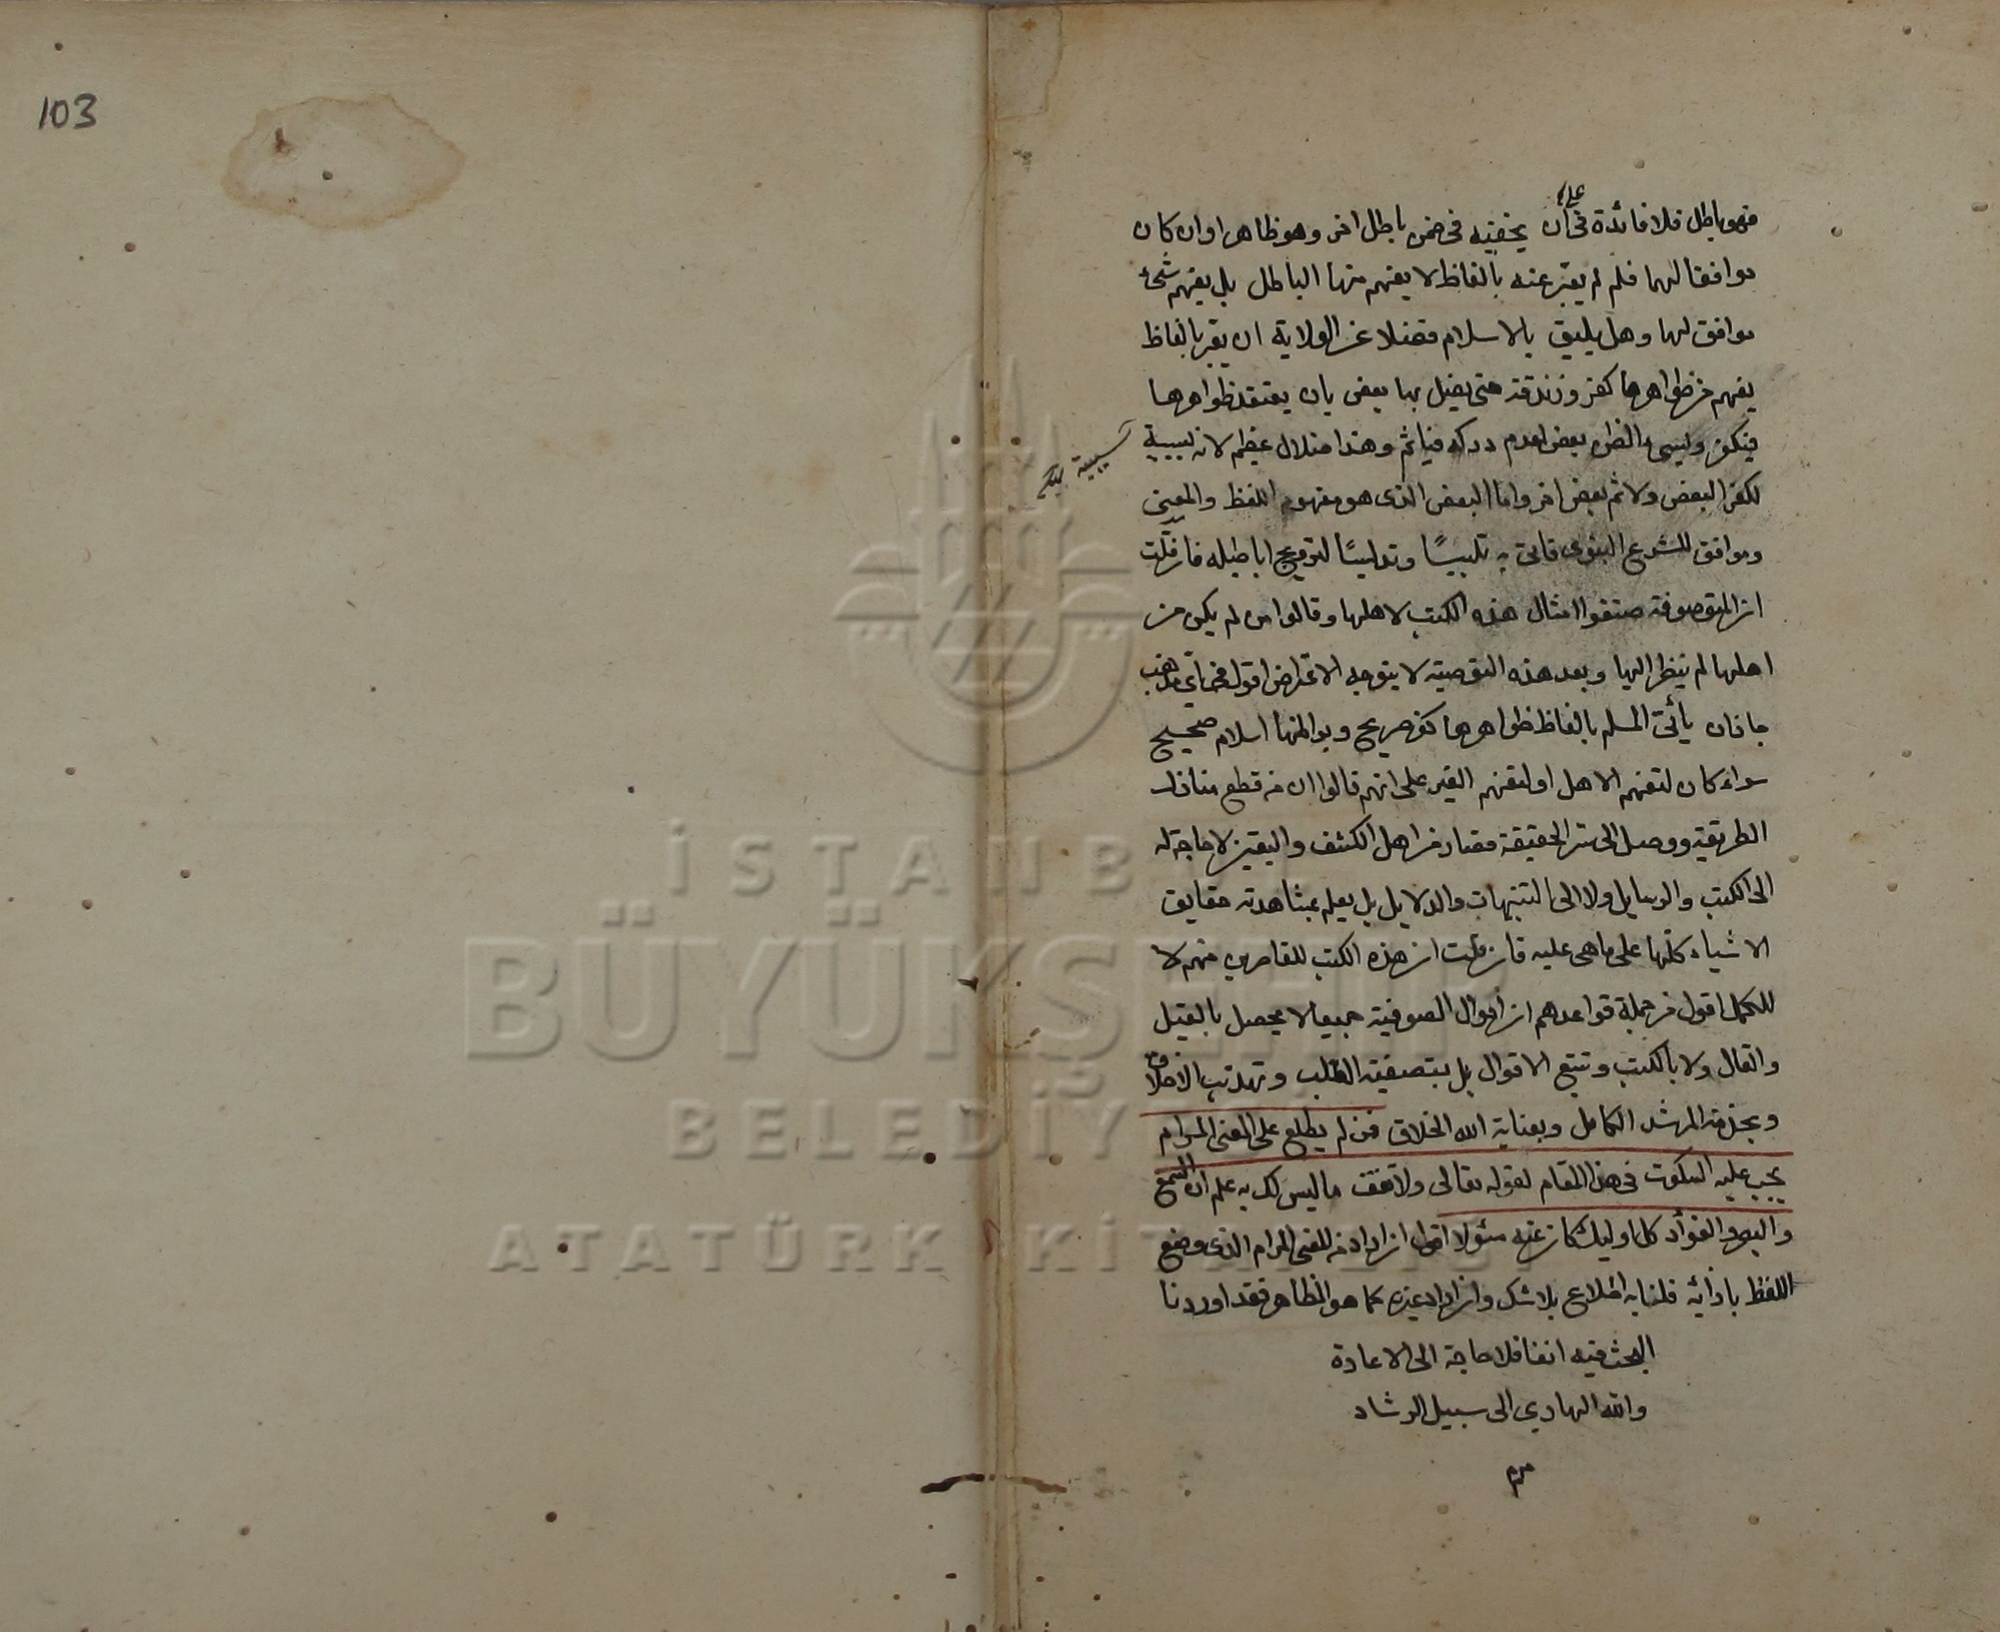 103
علي
فهو باطل فلا فائدة في أن يخفيه في ضمن باطل اخر وهو ظاهر او ان كان
موافقا لهما فلم لم يعبّر عنه بالفاظ لا يفهم منها الباطل بل يفهم شئ
موافق لهما وهل يليق بالاسلام فضلا عن الولاية ان يعبر بالفاظ
يفهم من ظواهرها كفر وزندقة حتى يضل بها بعض بان يعتقد ظواهرها
فيكفر ويسئ الظن بعض لعدم دركه فيأثم وهذا ضلال عظيم لانه سببية
سببية
لكفر البعض ولاثم بعض اخر واما البعض الذى هو مفهوم اللفظ والمعنى
وموافق للشرع النبوى فاتى به تلبيسًا وتدليسًا لترويج اباطيله فان قلت
ان المتصوفة صنفوا امثال هذه الكتب لاهلها وقالوا من لم يكن من
اهلها لم ينظر اليها وبعد هذه التوصية لا يتوجه الاعتراض اقول في اي مذهب
جاز ان يأتى المسلم بالفاظ ظواهرها كفر صريح وبواطنها اسلام صحيح
سواء كان لتفهم الاهل او لتفهم الغير على انهم قالوا ان من قطع منازل
الطريقة ووصل الى سر الحقيقة فصار من اهل الكشف واليقين لا حاجة له
الى الكتب والرسايل ولا الى التنبيهات والدلايل بل يعلم بمشاهدته حقايق
الاشياء كلها على ما هى عليه فان قلت ان هذه الكتب للقاصرين منهم لا
للكمل اقول من جملة قواعدهم ان احوال الصوفية جميعا لا يحصل بالقيل
والقال ولا بالكتب وتتبع الاقوال بل بتصفية القلب وتهذيب الاخلاق
وبخدمة المرشد الكامل وبعناية الله الخلاق فمن لم يطلع على المعنى المرام
يجب عليه السكوت في هذا المقام لقوله تعالى ولا تقف ما ليس لك به علم ان السمع
والبصر والفؤاد كل اوليك كان عنه مسئولا اقول ان اراد من المعنى المرام الذى وضع
اللفظ بازائه فلنا به اطلاع بلا شك وان اراد غيره كما هو الظاهر فقد اوردنا
البحث فيه انفا فلا حاجة الى الاعادة
والله الهادي الى سبيل الرشاد
İSTANB
BÜYÜKŞEHİR
BELEDİY
ATATÜRK KİTAPLIĞI